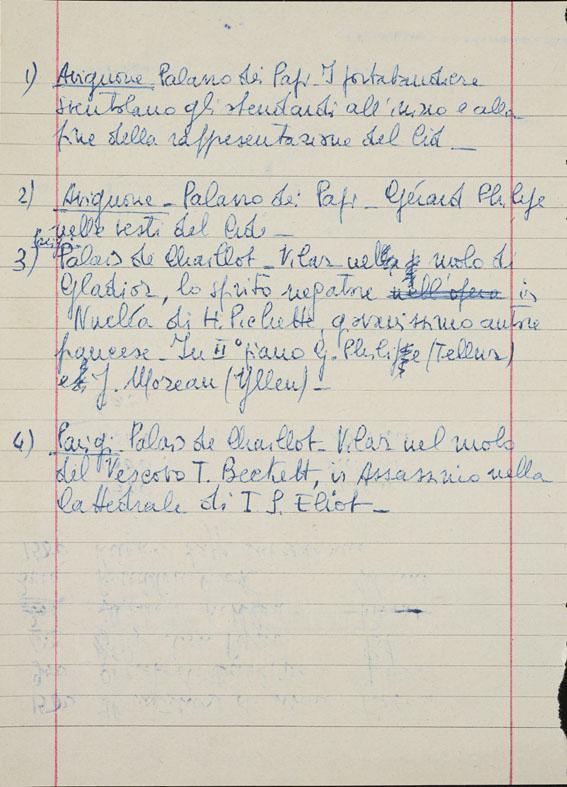 1) Avignone - Palazzo dei Papi - I portabandiere
sventolano gli stendardi all'inizio e alla
fine della rappresentazione del Cid -
2) Avignone - Palazzo dei Papi - Gérard Philipe
nelle vesti del Cid -
Parigi
3) Palais de Chaillot - Vilar nel ruolo di
Gladior, lo spirito negatore nell'opera in
Nucléa di H. Pichette, giovanissimo autore
francese - In II° piano G. Philipe (Tellur)
e J. Moreau (Yllen) -
4) Parigi Palais de Chaillot - Vilar nel ruolo
del Vescovo T. Beckett, in Assassinio nella
Cattedrale di T S. Eliot -